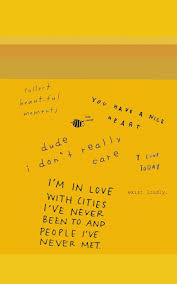 collect
beautiful
moments
YOU HAVE A NICE
HEART.
dude
i don't really
care
I LOVE
TODAY
I'M IN LOVE
WITH CITIES
I'VE NEVER
BEEN TO AND
PEOPLE I'VE
NEVER MET.
exist loudly.